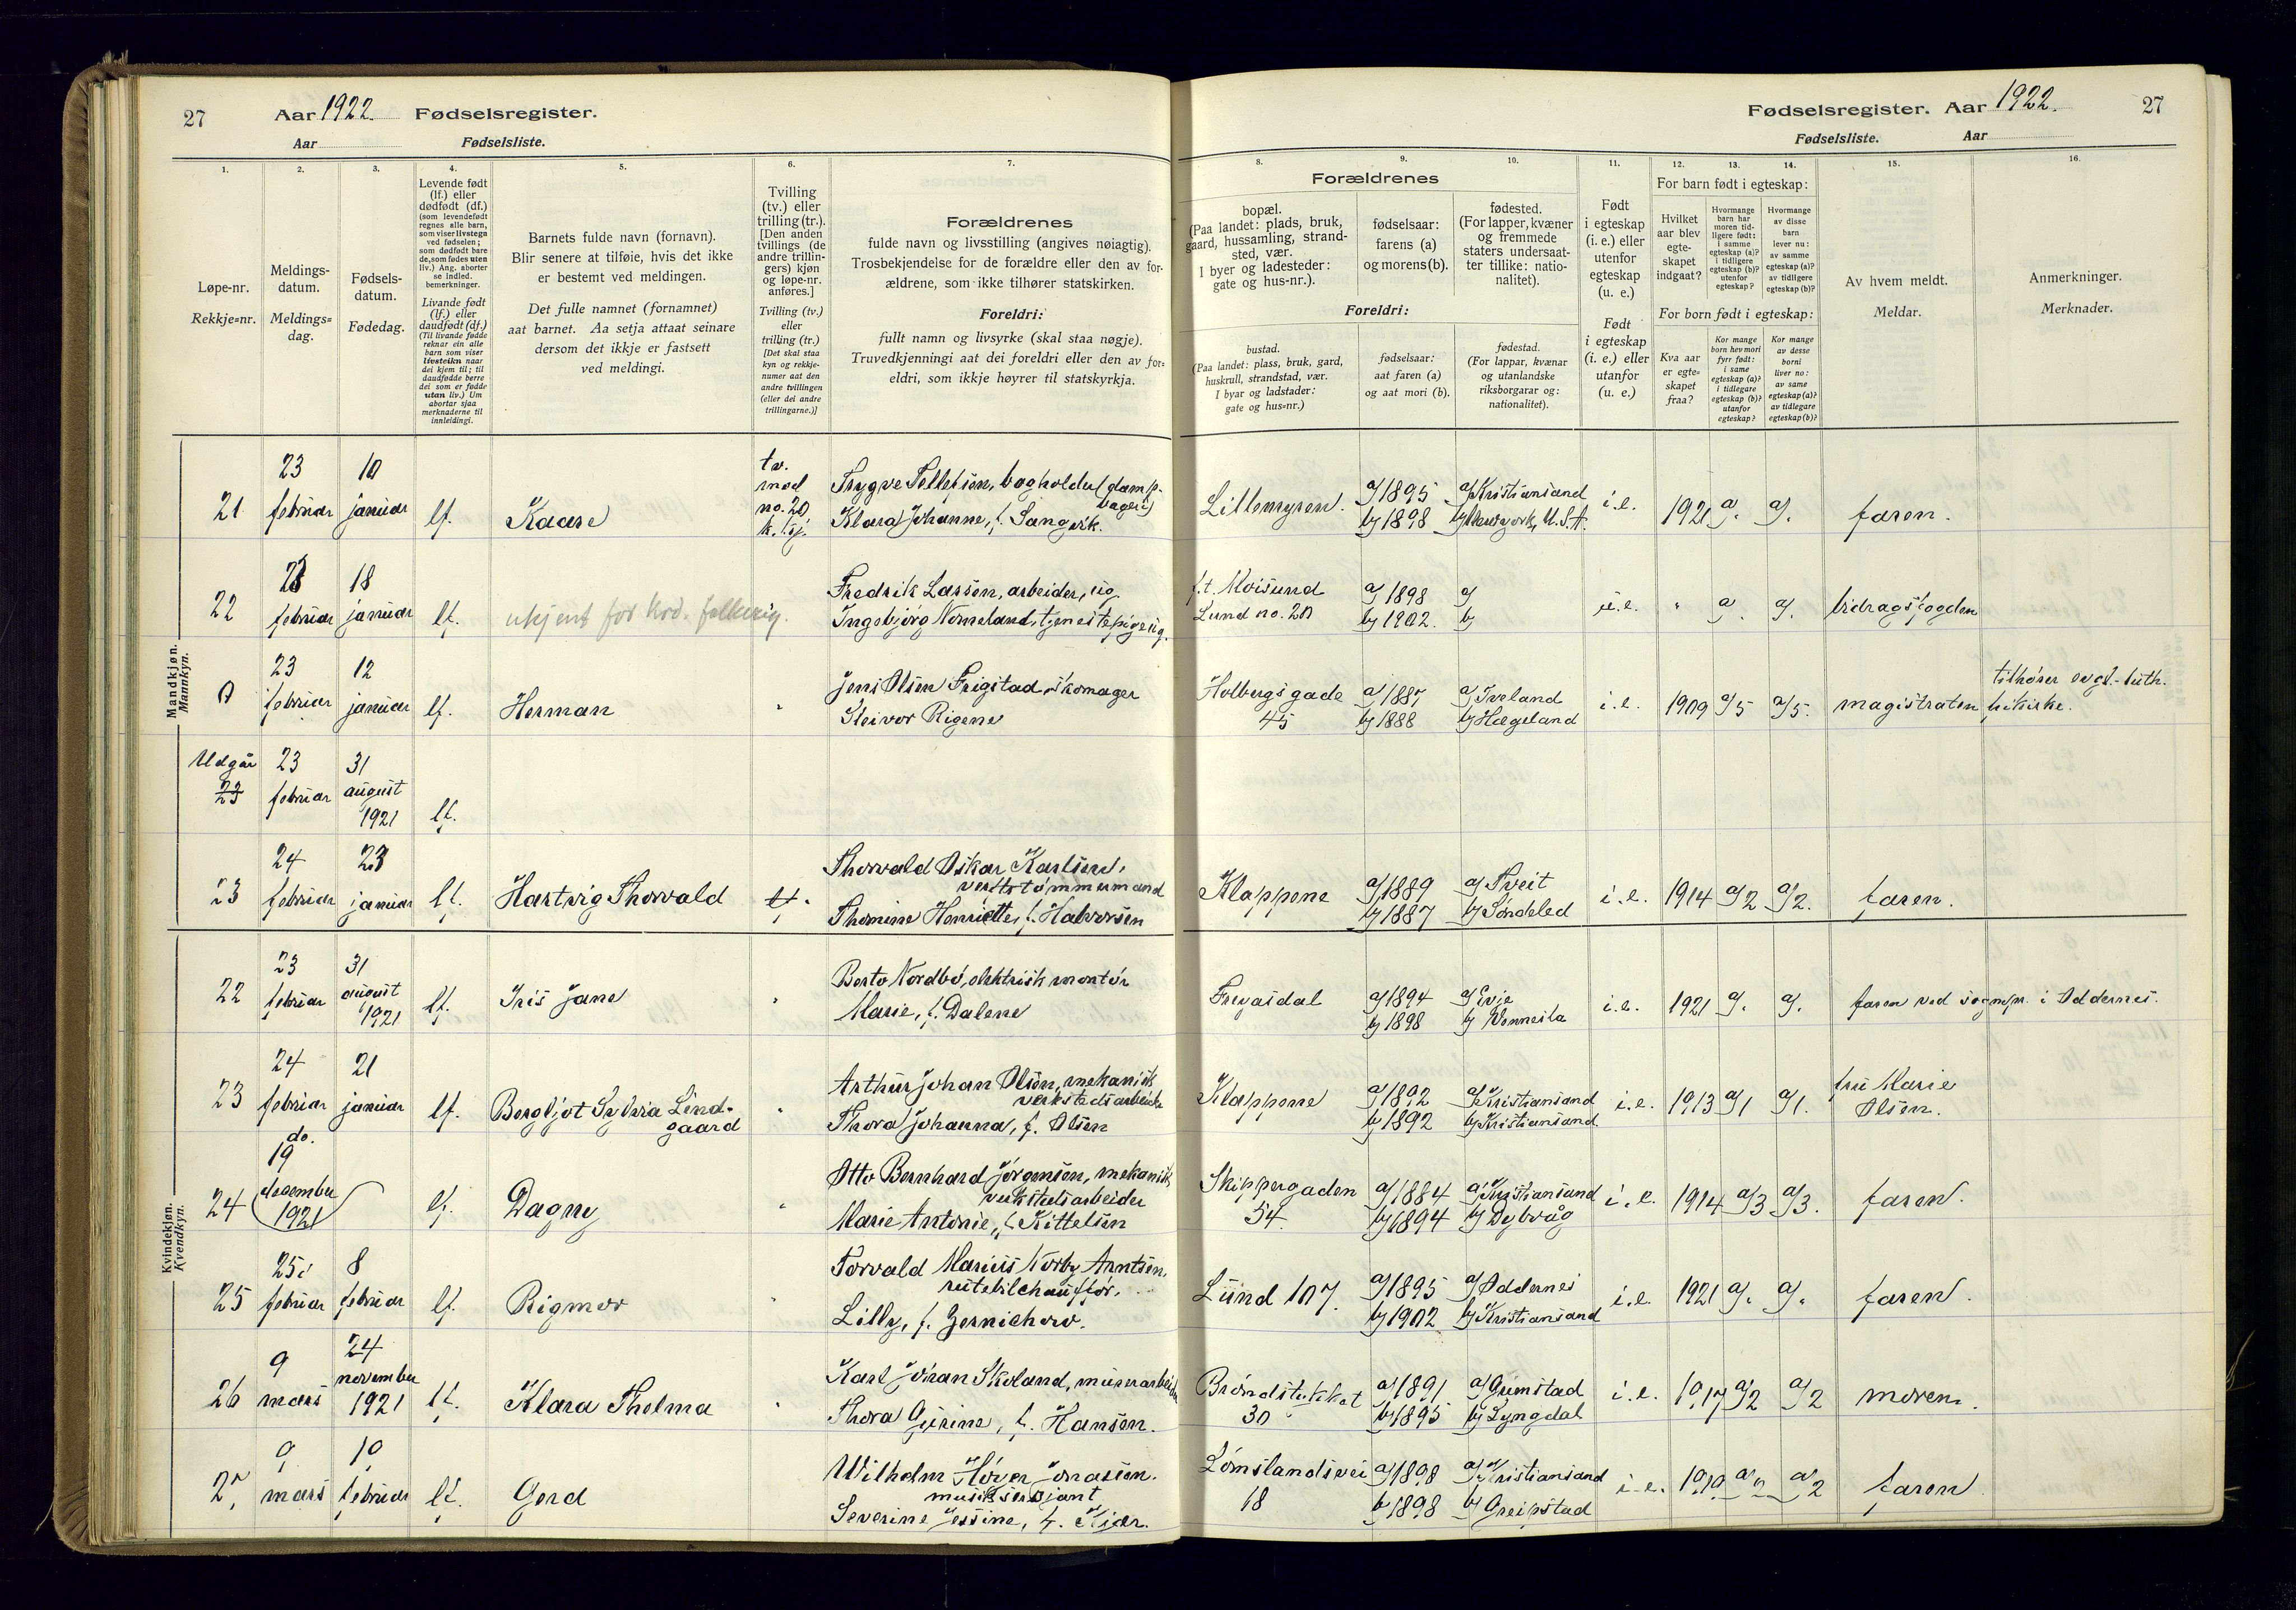 27 Aar 1922. Fødselsregister.
Aar Fødselsliste.
Fødselsregister. Aar 1922. 27
Fødselsliste. Aar
1. 2. 3. 4. 5. 6. 7.
Løpe-nr.
Rekkje=nr.
Meldings-
datum.
Meldings=
dag.
Fødsels-
datum.
Fødedag.
Levende født
(lf.) eller
dødfødt (df.)
(som levendefødt
regnes alle barn,
som viser livstegn
ved fødselen;
som dødfødt bare
de, som fødes uten
liv.) Ang. aborter
se indled.
bemerkninger.
Livande født
(lf.) eller
daudfødt (df.)
(Til livande fødde
reknar ein alle
barn som viser
livsteikn naar
dei kjem til; til
daudfødde berre
dei som er fødde
utan liv.) Um
abortar sjaa
merknaderne til
innleidingi.
Barnets fulde navn (fornavn).
Blir senere at tilføie, hvis det ikke
er bestemt ved meldingen.
Det fulle namnet (fornamnet)
aat barnet. Aa setja attaat seinare
dersom det ikkje er fastsett
ved meldingi.
Tvilling
(tv.) eller
trilling (tr.).
[Den anden
tvillings (de
andre trillin-
gers) kjøn
og løpe-nr.
anføres.]
Tvilling (tv.)
eller
trilling (tr.)
[Det skal staa
kyn og rekkje-
numer aat den
andre tvillingen
(eller dei andre
trillingarne.)]
Forældrenes
fulde navn og livsstilling (angives nøiagtig).
Trosbekjendelse for de forældre eller den av for-
ældrene, som ikke tilhører statskirken.
Foreldri:
fullt namn og livsyrke (skal staa nøgje).
Truvedkjenningi aat dei foreldri eller den av for-
eldri, som ikkje høyrer til statskyrkja.
8. 9. 10. 11. 12. 13. 14. 15. 16.
Forældrenes
bopæl.
(Paa landet: plads, bruk,
gaard, hussamling, strand-
sted, vær.
I byer og ladesteder:
gate og hus-nr.).
fødselsaar:
farens (a)
og morens (b).
fødested.
(For lapper, kvæner
og fremmede
staters undersaat-
ter tillike: natio-
nalitet).
Foreldri:
bustad.
(Paa landet: plass, bruk, gard,
huskrull, strandstad, vær.
I byar og ladstader:
gate og hus=nr.)
fødselsaar:
aat faren (a)
og aat mori (b).
fødestad.
(For lappar, kvænar
og utanlandske
riksborgarar og:
nationalitet).
Født
i egteskap
(i. e.) eller
utenfor
egteskap
(u. e.)
Født
i egteskap
(i. e.) eller
utanfor
(u. e.)
For barn født i egteskap:
Hvilket
aar blev
egte-
skapet
indgaat?
Hvormange
barn har
moren tid-
ligere født:
i samme
egteskap (a)?
i tidligere
egteskap (b)?
utenfor
egteskap?
Hvormange
av disse
barn
lever nu:
av samme
egteskap (a)?
av tidligere
egteskap (b)?
For born født i egteskap:
Kva aar
er egte=
skapet
fraa?
Kor mange
born hev mori
fyrr født:
i same
egteskap (a)?
i tidlegare
egteskap (b)?
utanfor
egteskap?
Kor mange
av desse
borni
liver no:
av same
egteskap (a)?
av tidlegare
egteskap (b)?
Av hvem meldt.
Meldar.
Anmerkninger.
Merknader.
Mandkjøn.
Mannkyn.
21 23 februar 10 januar lf. Kaare tv. med no. 20 k. kj. Trygve Tellefsen, bogholder (damp-bageri)
Klara Johanne, f. Sangvik.
Lillemyren. a/1895 b/1898 a/Kristiansand b/Newyork, U.S.A. i.e. 1921 a/. a/. faren.
22 februar 18 januar lf. ukjent for krd. folkereg. Fredrik Larsen, arbeider, ug.
Ingebjørg Nomeland, tjenestepige ug.
f.t. Moisund Lund no. 20 a/1898 b/1902. a/ b/ u.e. " a/. a/. bidragsfogden
0 23 februar 12 januar lf. Herman " Jens Olsen Frigstad, skomager
Steivor Rigene
Holbergsgade 45 a/1887 b/1888 a/Iveland b/Hægeland i.e. 1909 a/5 a/5. magistraten tilhører evgl.-luth. frikirke.
Udgår 23 23 februar 31 august 1921 lf.
23 24 februar 23 januar lf. Hartvig Thorvald Thorvald Oskar Karlsen, verftstømmermand
Thomine Henriette, f. Halvorsen
Klappene a/1889 b/1887 a/Tveit b/Søndeled i.e. 1914 a/2 a/2. faren.
Kvindekjøn.
Kvendkyn.
22 23 februar 31 august 1921 lf. Iris Jane " Berto Nordbø, elektrisk montør
Marie, f. Dalene
Fregasdal a/1894 b/1898 a/Evje b/Vennesla i.e. 1921 a/. a/. faren ved sognepr. i Oddernes.
23 24 februar 21 januar lf. Bergljot Sylvia Lind-gaard " Arthur Johan Olsen, mekanisk verkstedsarbeider
Thora Johanna, f. Olsen
Klappene a/1892 b/1892 a/Kristiansand b/Kristiansand i.e. 1913 a/1 a/1. fru Marie Olsen.
24 do. (19 desember 1921) lf. Dagny " Otto Bernhard Jørgensen, mekanisk verkstedsarbeider
Marie Antonie, f. Kittelsen
Skippergaden 54. a/1884 b/1894 a/Kristiansand b/Dybvåg i.e. 1914 a/3 a/3. faren.
25 25 februar 8 februar lf. Rigmor " Torvald Marius Norby Arntsen, rutebilchauffør.
Lilly, f. Jernichow.
Lund 107. a/1895 b/1902 a/Oddernes b/Kristiansand i.e. 1921 a/. a/. faren.
26 9 mars 24 november 1921 lf. Klara Thelma " Karl Jøran Skoland, murerarbeider
Thora Gurine, f. Hansen.
Brøndstykket 30 a/1891 b/1895 a/Grimstad b/Lyngdal i.e. 1917 a/2 a/2 moren.
27 9 mars 10 februar lf. Gerd Wilhelm Høyer Jonassen. musiksersjant
Severine Jessine, f. Kjær.
Lømslandsvei 18 a/1898 b/1898 a/Kristiansand b/Greipstad i.e. 1919 a/2 a/2 faren